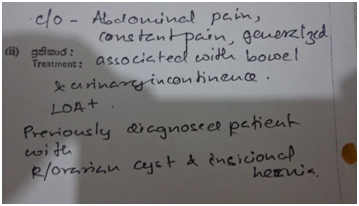 c/o - Abdominal pain,
constant pain, generalized
(ii) ප්‍රතිකාර : associated with bowel
Treatment:
& urinary incontinence.
LOA+.
Previously diagnosed patient
with
R/ovarian cyst & insicional
hernia.